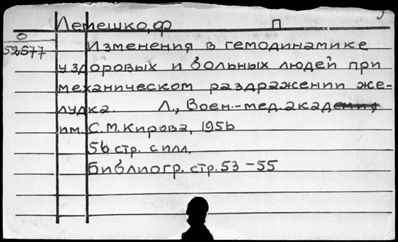 Лемешко, Ф П
О
52577
Изменения в гемодинамике
у здоровых и больных людей при
механическом раздражении же-
лудка. Л., Воен.-мед. академия
им. С.М.Кирова, 1956
56 стр. с илл.
Библиогр. стр. 53-55